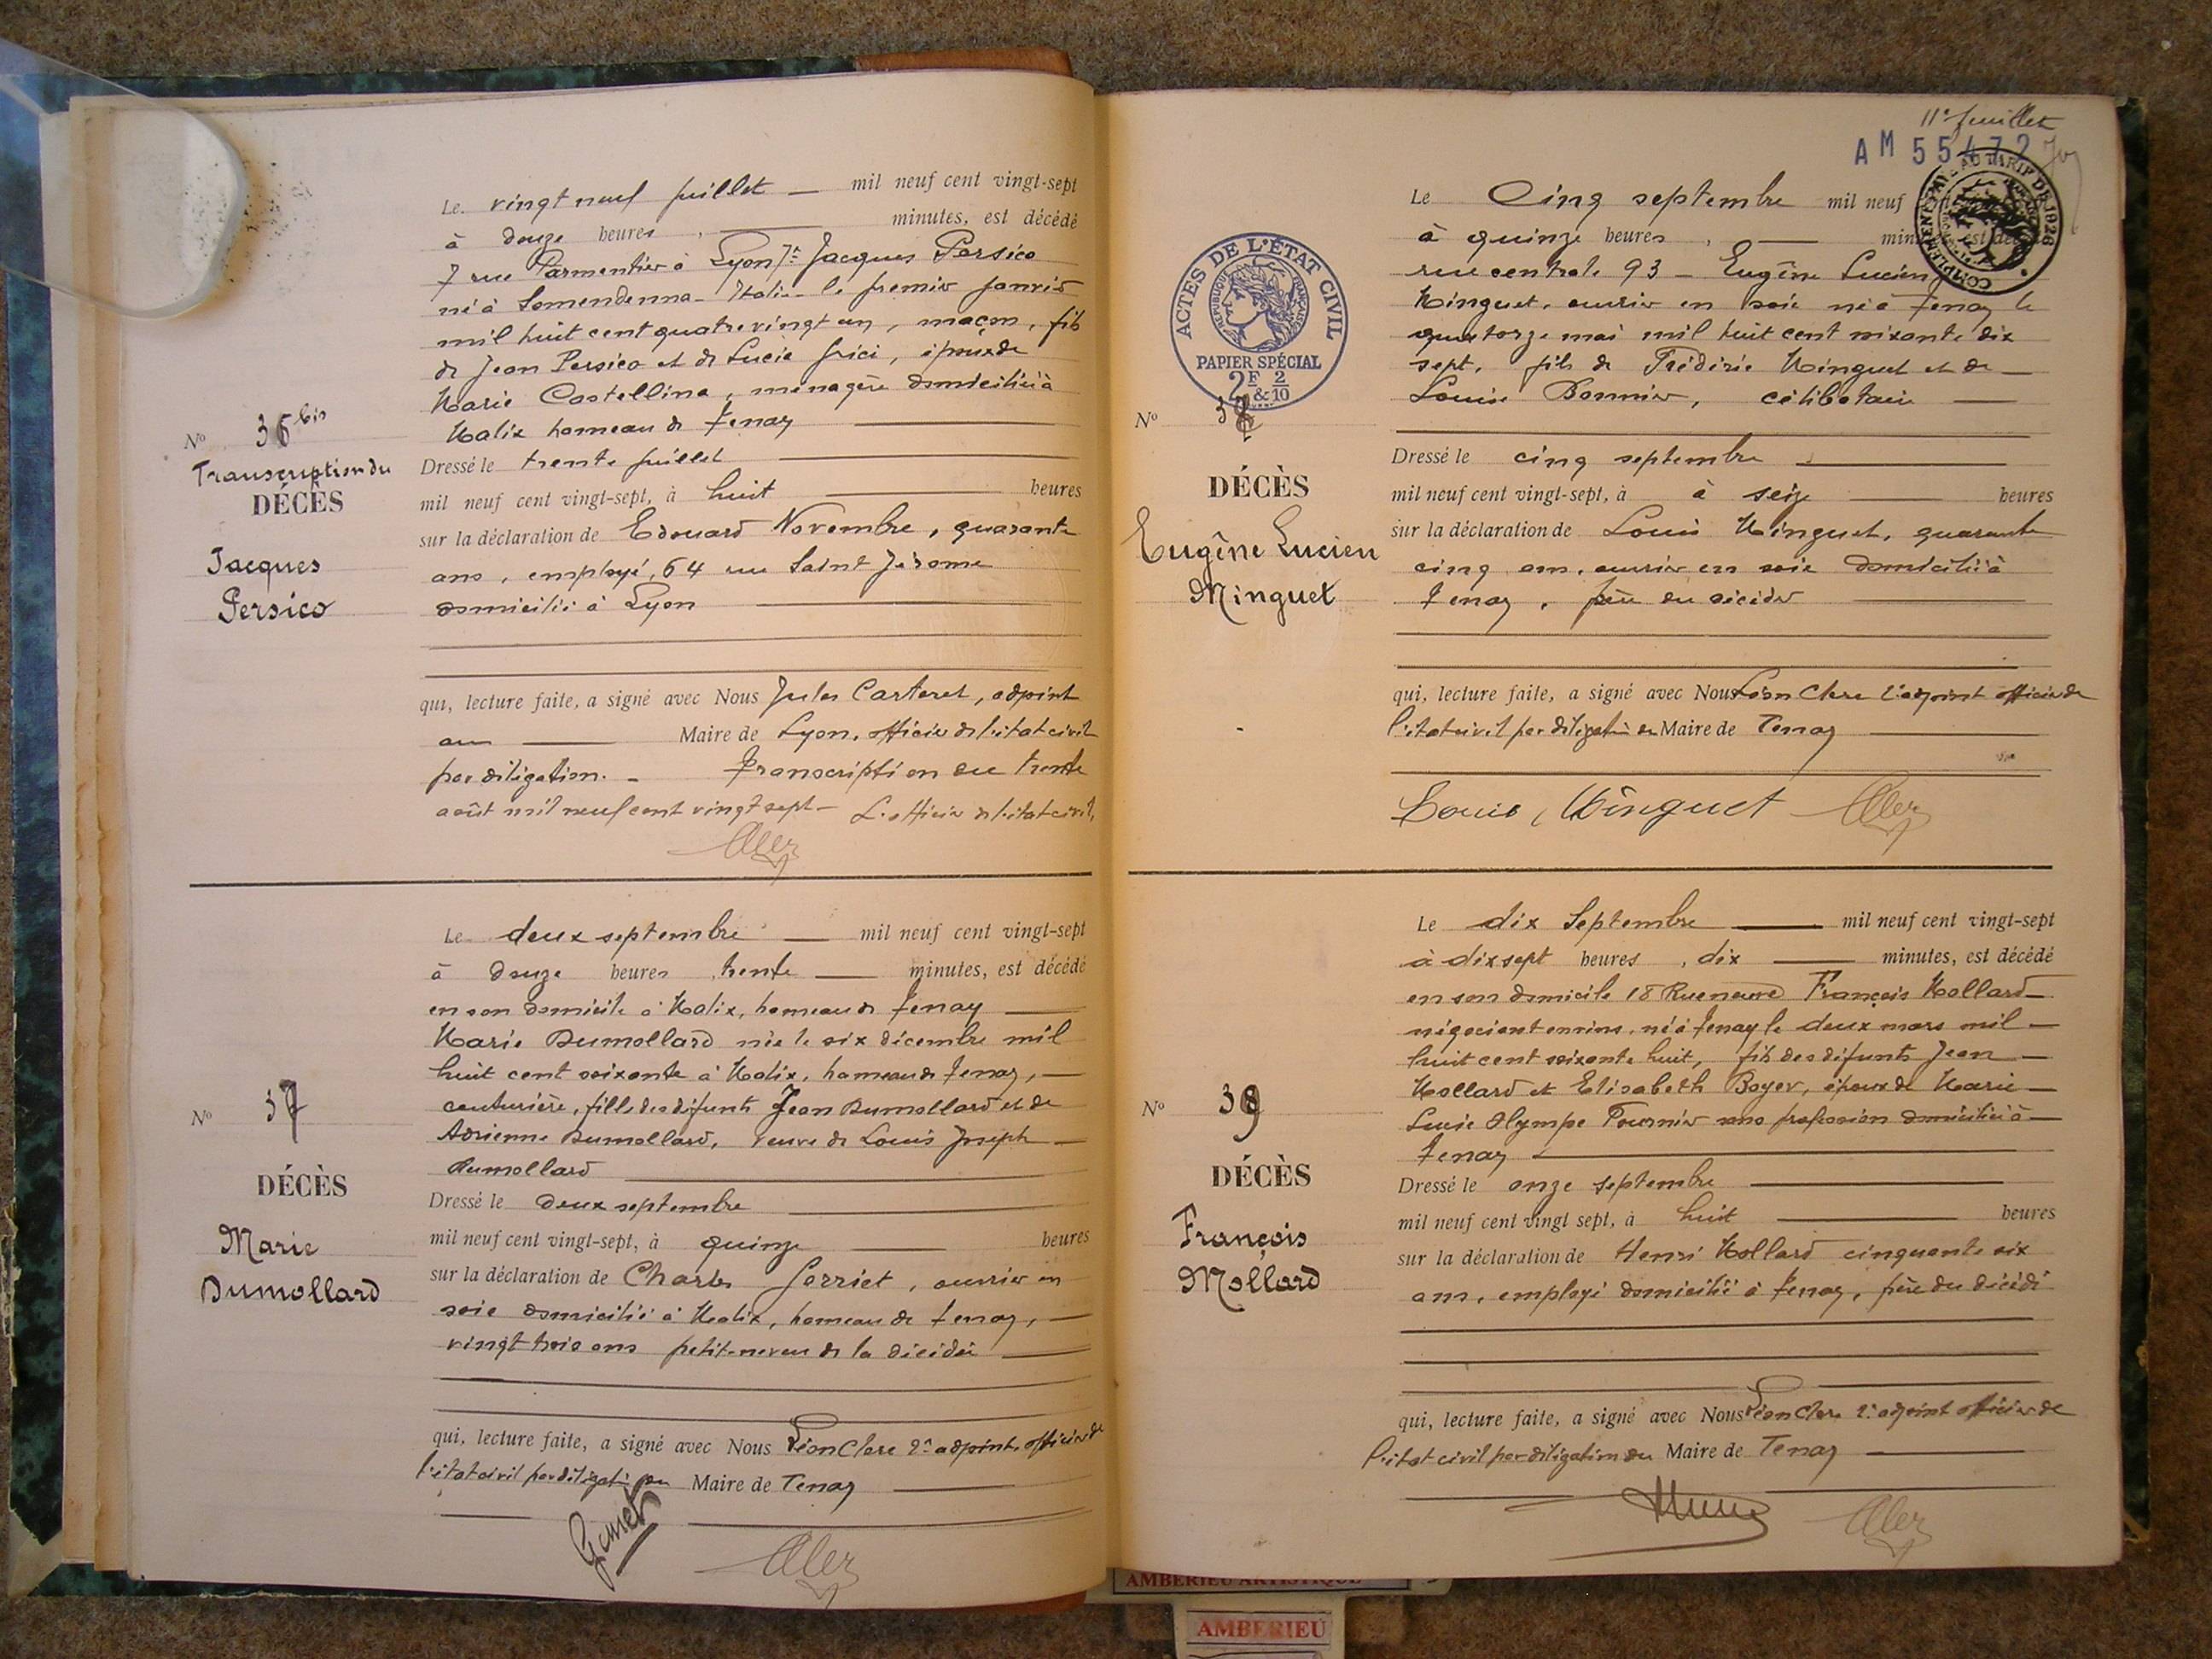 Le vingt neuf juillet — mil neuf cent vingt-sept
à douze heures, — minutes, est décédé
7 rue Parmentier à Lyon 7e Jacques Persico
né à Somendenna - Italie - le premier janvier
mil huit cent quatre vingt un, maçon, fils
de Jean Persico et de Lucie Grici, époux de
Marie Castellina, ménagère domicilié à
Malix hameau de Tenay
Dressé le trente juillet
mil neuf cent vingt-sept, à huit heures
sur la déclaration de Edouard Novembre, quarante
ans, employé, 64 rue Saint Jérome
domicilié à Lyon
qui, lecture faite, a signé avec Nous Jules Carteret, adjoint
au — Maire de Lyon, officier de l'état civil
par délégation. - Transcription du trente
août mil neuf cent vingt sept - L'officier de l'état civil,
No 36 bis
Transcription du
DÉCÈS
Jacques
Persico
Le deux septembre — mil neuf cent vingt-sept
à douze heures, trente — minutes, est décédé
en son domicile à Malix, hameau de Tenay
Marie Dumollard née le six décembre mil
huit cent soixante à Malix, hameau de Tenay, —
couturière, fille des défunts Jean Dumollard et de
Adrienne Dumollard, veuve de Louis Joseph —
Dumollard
Dressé le deux septembre
mil neuf cent vingt-sept, à quinze heures
sur la déclaration de Charles ouvrier en
soie domicilié à Malix, hameau de Tenay, —
vingt trois ans petit-neveu de la décédée
qui, lecture faite, a signé avec Nous Léon Clerc 2e adjoint, officier de
l'état civil par délégation du Maire de Tenay
No 37
DÉCÈS
Marie
Dumollard
11e feuillet
AM 55472
COMPLEMENT PAYÉ AU TARIF DE 1926
Le Cinq septembre mil neuf
à quinze heures, — minutes est décédé
rue centrale 93 - Eugène Lucien
Minguet, ouvrier en soie né à Tenay le
quatorze mai mil huit cent soixante dix
sept, fils de Frédéric Minguet et de —
Louise Bonnier, célibataire —
Dressé le cinq septembre
mil neuf cent vingt-sept, à à seize heures
sur la déclaration de Louis Minguet, quarante
cinq ans, ouvrier en soie domicilié à
Tenay, frère du décédé
qui, lecture faite, a signé avec Nous Léon Clerc 2e adjoint officier de
l'état civil par délégation du Maire de Tenay
Louis Minguet
ACTES DE L'ÉTAT CIVIL
REPUBLIQUE FRANÇAISE
PAPIER SPÉCIAL
2F & 2/10
No 38
DÉCÈS
Eugène Lucien
Minguet
Le dix Septembre — mil neuf cent vingt-sept
à dix sept heures, dix — minutes, est décédé
en son domicile 18 Rue neuve François Mollard —
négociant en vins, né à Tenay le deux mars mil —
huit cent soixante huit, fils des défunts Jean —
Mollard et Elisabeth Boyer, époux de Marie —
Lucie Olympe Fournier sans profession domicilié à —
Tenay
Dressé le onze septembre
mil neuf cent vingt sept, à huit heures
sur la déclaration de Henri Mollard cinquante six
ans, employé domicilié à Tenay, frère du décédé
qui, lecture faite, a signé avec Nous Léon Clerc 2e adjoint officier de
l'état civil par délégation du Maire de Tenay
No 39
DÉCÈS
François
Mollard
AMBERIEU ARTISTIQUE
AMBERIEU